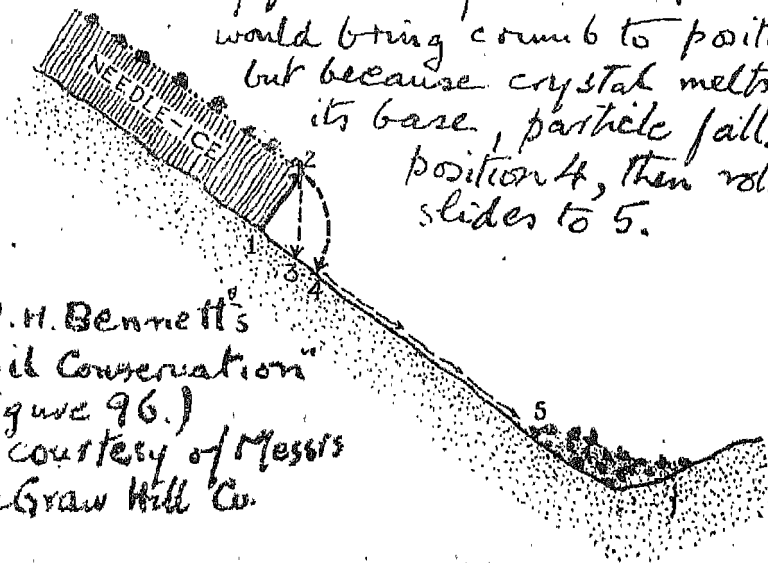 would bring crumb to posit
but because crystal melts
its base, particle fall
position 4, then rol
slides to 5.
NEEDLE-ICE
2
1
3
4
5
.H. Bennett's
il Conservation"
gure 96.)
courtesy of Messrs
Graw Hill Co.